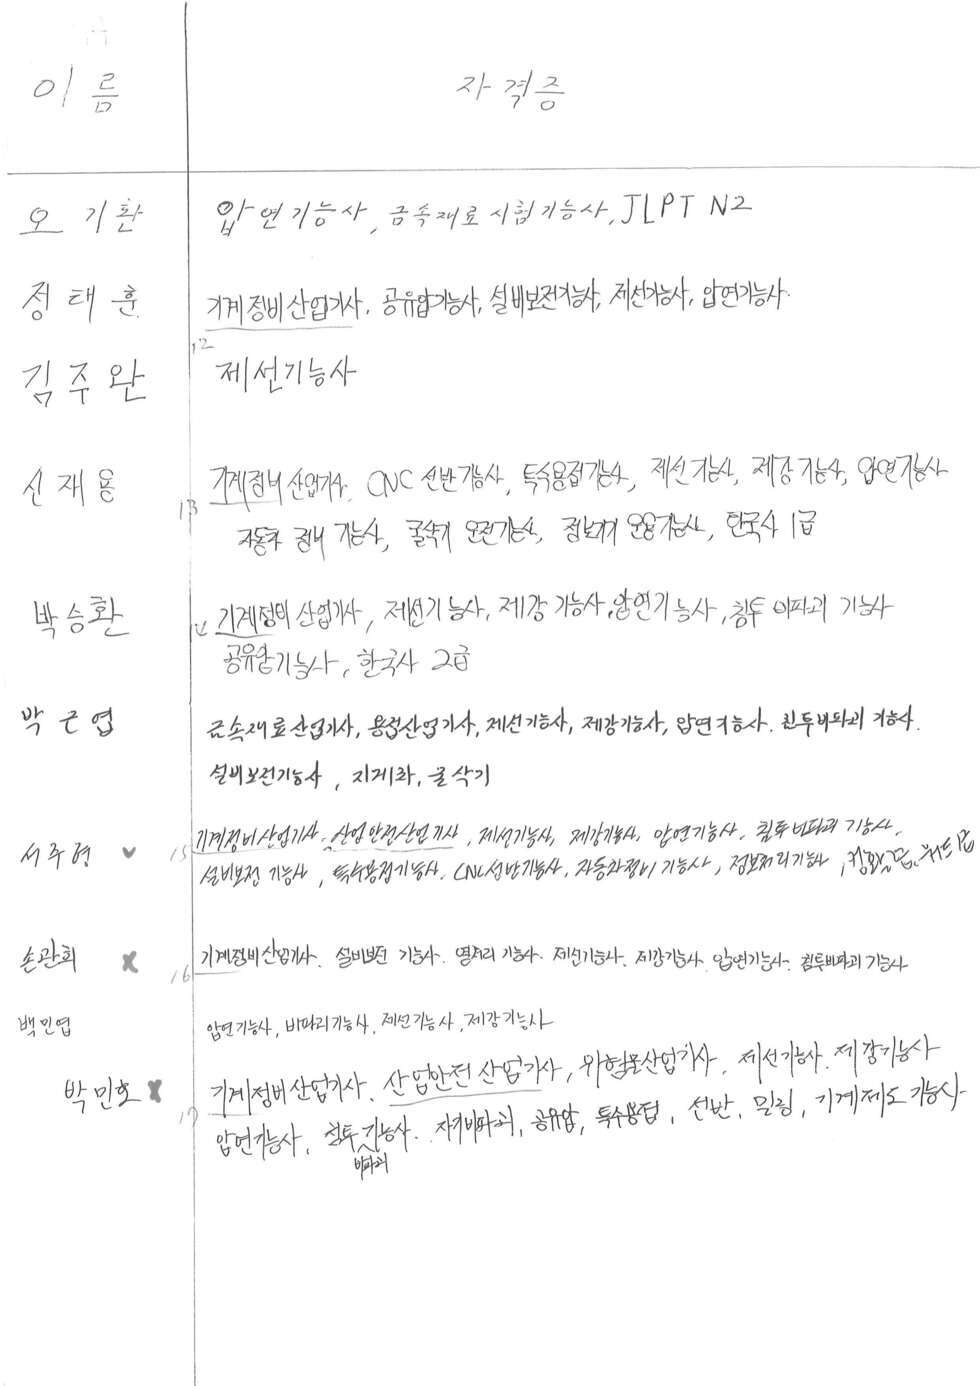 이름 자격증
오기환 압연기능사, 금속재료시험기능사, JLPT N2
정태훈 기계정비산업기사, 공유압기능사, 설비보전기능사, 제선기능사, 압연기능사.
12
김주완 제선기능사
신재용 기계정비 산업기사, CNC 선반기능사, 특수용접기능사, 제선기능사, 제강기능사, 압연기능사
13 자동차 정비 기능사, 굴삭기 운전기능사, 정보기기 운용기능사, 한국사 1급
박승환 기계정비 산업기사, 제선기능사, 제강 기능사, 압연기능사, 침투비파괴 기능사
공유압기능사, 한국사 2급
박근엽 금속재료산업기사, 용접산업기사, 제선기능사, 제강기능사, 압연기능사. 침투비파괴 기능사.
설비보전기능사, 지게차, 굴삭기
서주형 15 기계정비산업기사. 산업안전산업기사, 제선기능사, 제강기능사, 압연기능사, 침투비파괴 기능사,
설비보전 기능사, 특수용접기능사, CNC선반기능사, 자동차정비기능사, 정보처리기능사,
손관희 기계정비산업기사. 설비보전 기능사. 열처리 기능사. 제선기능사. 제강기능사. 압연기능사. 침투비파괴 기능사
16
백민엽 압연기능사, 비파괴기능사, 제선기능사, 제강기능사
박민호 기계정비산업기사, 산업안전 산업기사, 위험물산업기사, 제선기능사. 제강기능사
17 압연기능사, 침투 기능사. 자기비파괴, 공유압, 특수용접, 선반, 밀링, 기계제도기능사.
비파괴